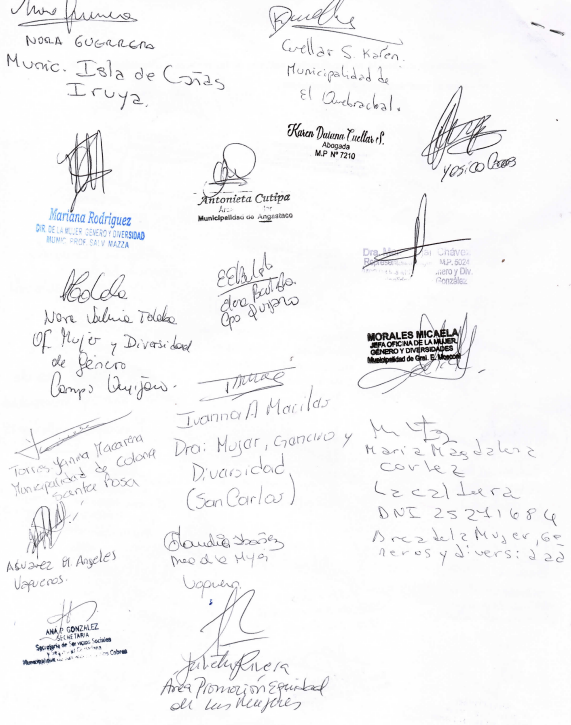 NORA GUERRERO
Munic. Isla de Cañas
Iruya.
Cuellar S. Karen.
Municipalidad de
El Quebrachal.
Karen Daiana Cuellar S.
Abogada
M.P Nº 7210
Yesica
Mariana Rodriguez
DIR. DE LA MUJER GENERO Y DIVERSIDAD
MUNIC. PROF. SALV. MAZZA
Antonieta Cutipa
Municipalidad de Angastaco
Dra. Chávez
M.P. 5024
González
Nora Valeria Toledo
Of. Mujer y Diversidad
de género
Campo Quijano.
Elena Bautista
Cpo Quijano
MORALES MICAELA
JEFA OFICINA DE LA MUJER,
GÉNERO Y DIVERSIDADES
Municipalidad de Gral. E. Mosconi
Torres Yanina Macarena
Municipalidad de Colonia
Santa Rosa
Ivanna A Macilas
Dra: Mujer, Genero y
Diversidad
(San Carlos)
Maria Magdalena
Cortez
La caldera
DNI 25241684
Area de la Mujer, Ge
neros y diversidad
Alvarez M. Angeles
Vaqueros.
Claudia Ibañez
Area de la Mujer
Vaqueros
ANA P. GONZALEZ
SECRETARIA
Secretaría de Servicios Sociales
Cobres
Rivera
Area Promoción Equidad
de las Mujeres